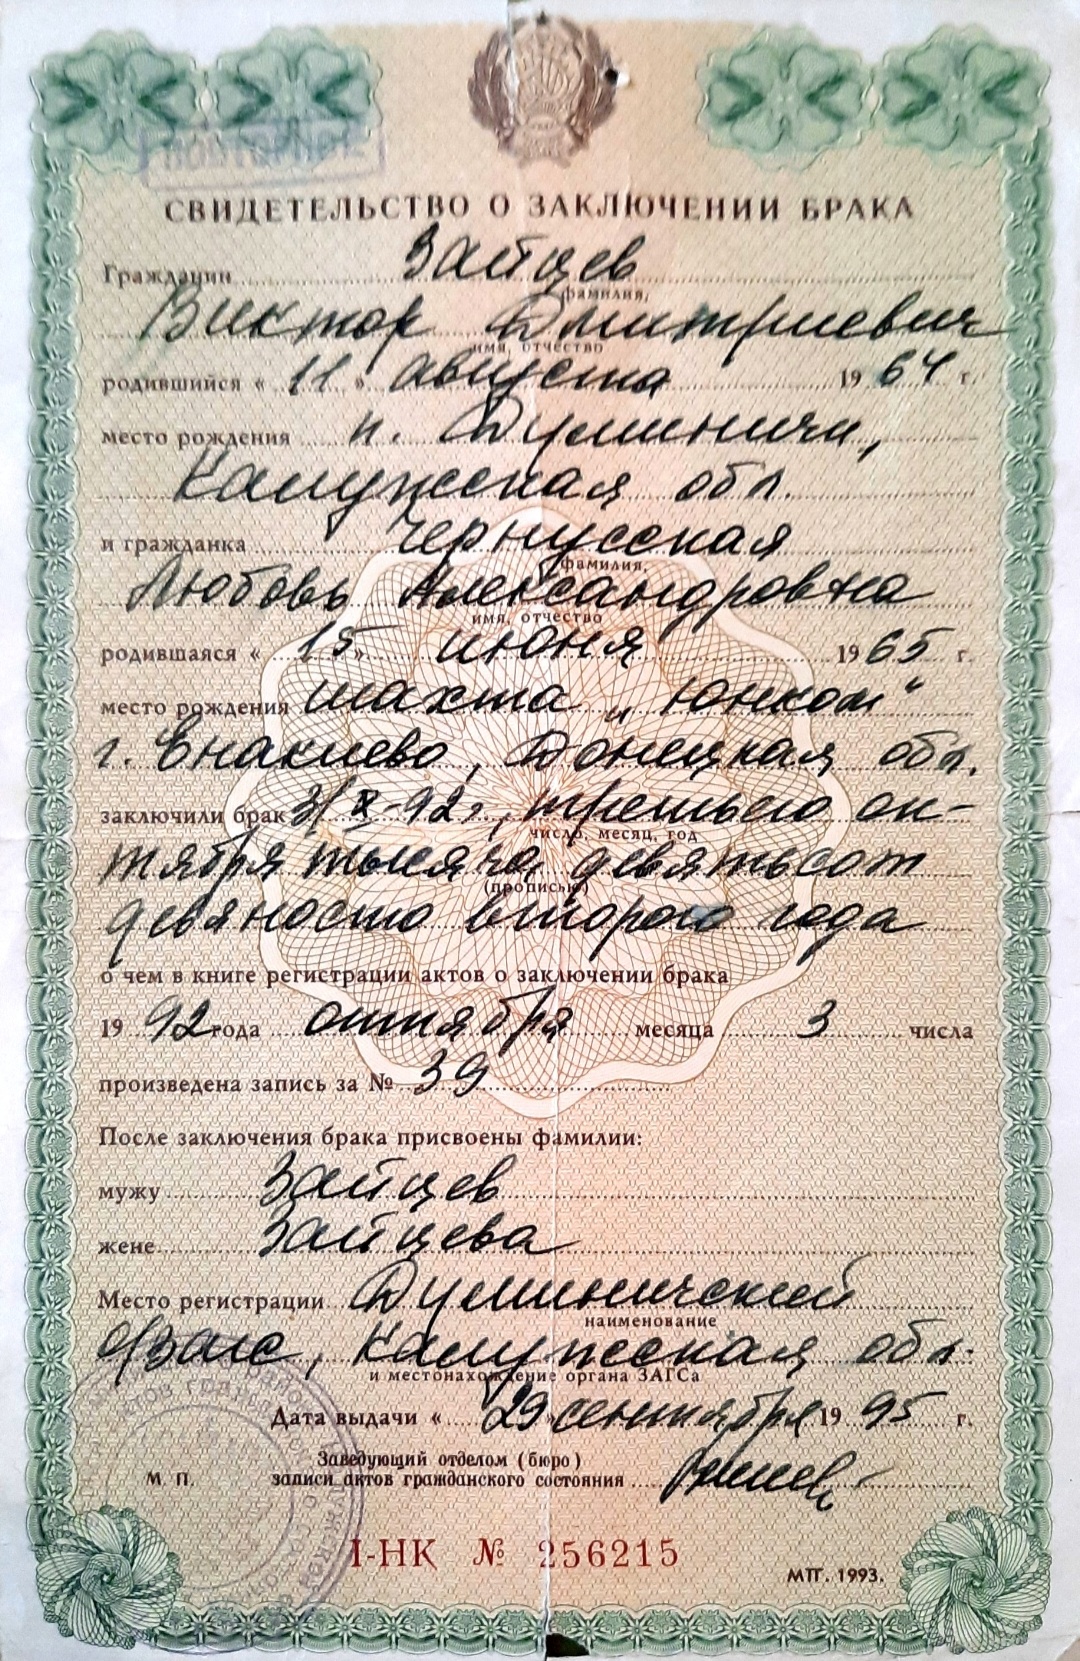 ПОВТОРНОЕ
СВИДЕТЕЛЬСТВО О ЗАКЛЮЧЕНИИ БРАКА
Гражданин Зайцев
фамилия,
Виктор Дмитриевич
имя, отчество
родившийся « 11 » августа 1964 г.
место рождения п. Думиничи,
Калужская обл.
и гражданка Чернусская
фамилия,
Любовь Александровна
имя, отчество
родившаяся « 15 » июня 1965 г.
место рождения шахта „Юнком“
г. Енакиево, Донецкая обл.
заключили брак 3/X-92г, третьего ок-
число, месяц, год
тября тысяча девятьсот
(прописью)
девяносто второго года
о чем в книге регистрации актов о заключении брака
1992 года октября месяца 3 числа
произведена запись за № 39
После заключения брака присвоены фамилии:
мужу Зайцев
жене Зайцева
Место регистрации Думиничский
наименование
рЗагс, Калужская обл.
и местонахождение органа ЗАГСа
Дата выдачи « 29 » сентября 1995 г.
Заведующий отделом (бюро)
записи актов гражданского состояния
М П.
I-НК № 256215
МТГ. 1993.